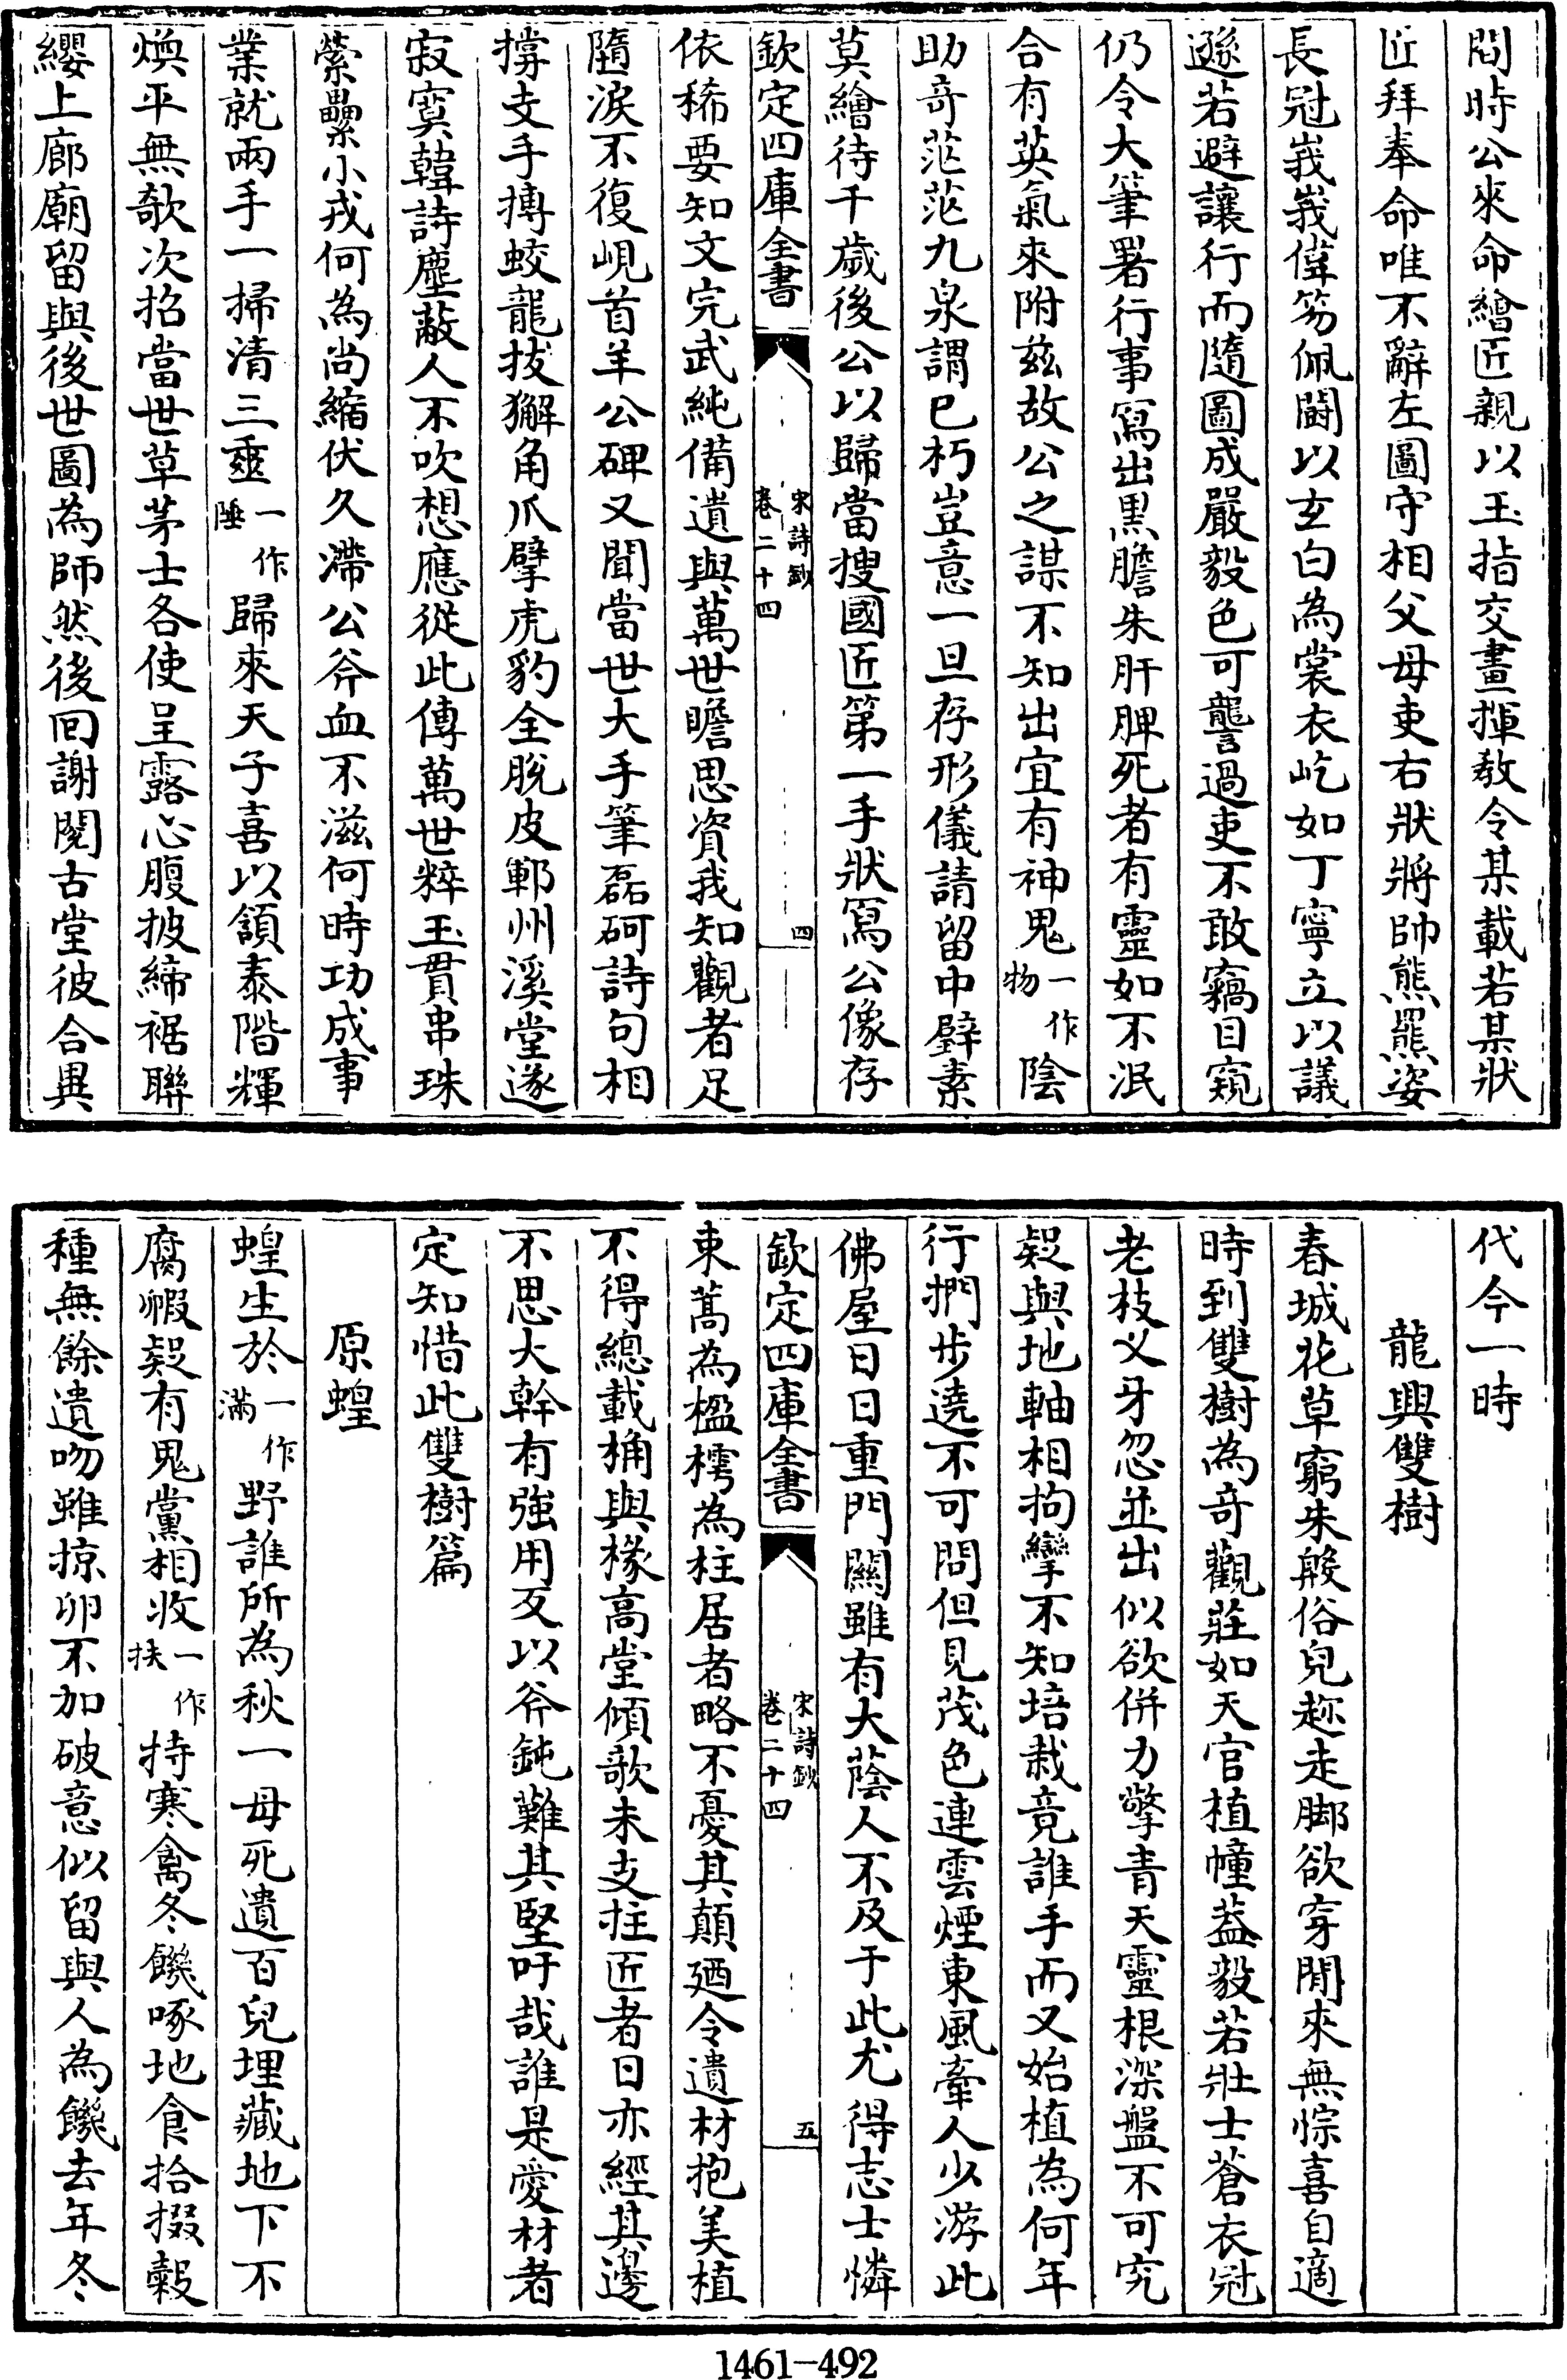 間時公來命繪匠親以玉指交畫揮教令某載若某狀
匠拜奉命唯不辭左圖守相父母吏右狀將帥熊羆姿
長冠峩峩偉笏佩闘以玄白為裳衣屹如丁寧立以議
遜若避讓行而隨圖成嚴毅色可讋過吏不敢竊目窺
仍令大筆署行事寫出黒膽朱肝脾死者有靈如不泯
合有英氣來附兹故公之謀不知出宜有神鬼一作物陰
助奇茫茫九泉謂已朽豈意一旦存形儀請留中壁素
莫繪待千歲後公以歸當搜國匠第一手狀寫公像存
欽定四庫全書 宋詩鈔 卷二十四 四
依稀要知文完武純備遺與萬世瞻思資我知觀者足
隨淚不復峴首羊公碑又聞當世大手筆磊砢詩句相
撐支手摶蛟龍拔獬角爪擘虎豹全脫皮鄆州溪堂遂
寂寞韓詩塵蔽人不吹想應從此傳萬世粹玉貫串珠
縈纍小戎何為尚縮伏久滯公斧血不滋何時功成事
業就兩手一掃清三垂一作陲歸來天子喜以頷泰階輝
煥平無欹次招當世草茅士各使呈露心腹披締裾聯
纓上廊廟留與後世圖為師然後回謝閱古堂彼合異
代今一時
龍興雙樹
春城花草窮朱殷俗兒趂走脚欲穿閒來無悰喜自適
時到雙樹為奇觀莊如天官植幢葢毅若壯士蒼衣冠
老枝义牙忽並出似欲併力擎青天靈根深盤不可究
疑與地軸相拘攣不知培栽竟誰手而又始植為何年
行捫步遶不可問但見茂色連雲煙東風牽人少游此
佛屋日日重門闗雖有大蔭人不及于此尤得志士憐
欽定四庫全書 宋詩鈔 卷二十四 五
束蒿為楹樗為柱居者略不憂其顛廼令遺材抱美植
不得總載桷與椽高堂傾歌未支拄匠者日亦經其邊
不思大幹有強用反以斧鈍難其堅吁哉誰是愛材者
定知惜此雙樹篇
原蝗
蝗生於一作滿野誰所為秋一母死遺百兒埋藏地下不
腐㿓疑有鬼黨相收一作扶持寒禽冬饑啄地食拾掇穀
種無餘遺吻雖掠卵不加破意似留與人為饑去年冬
1461—492